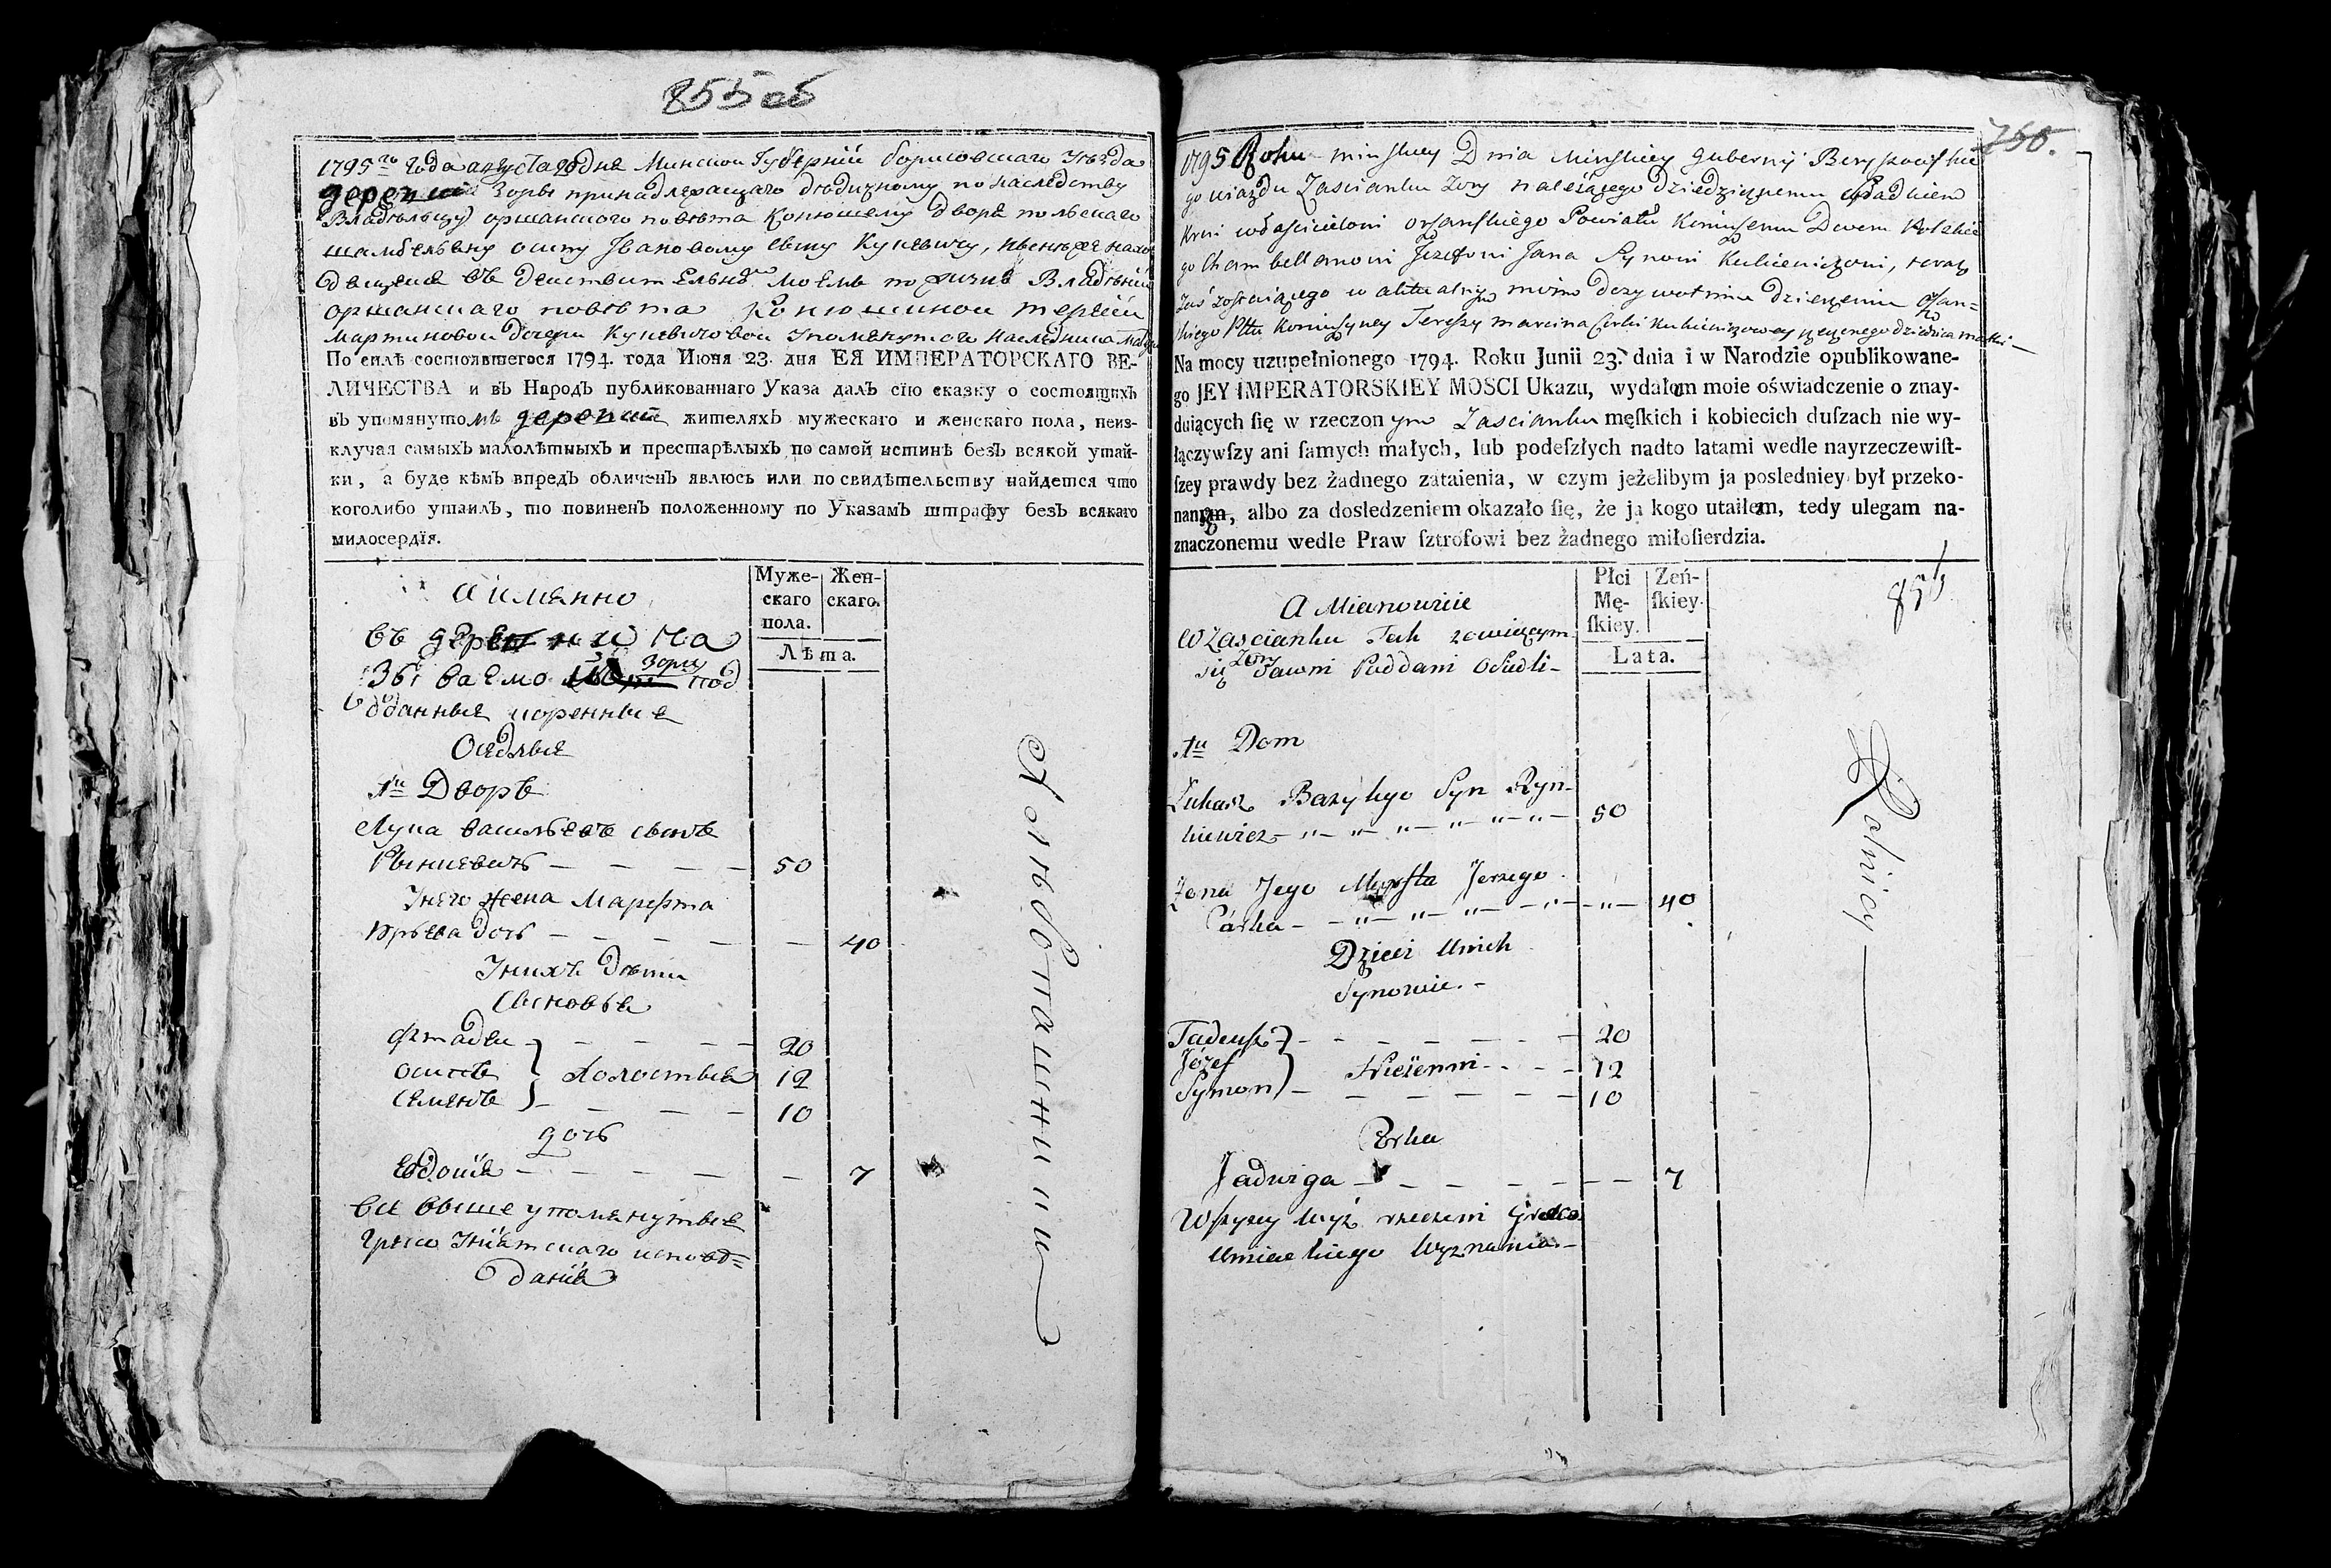 855 об
1795го года августа дня Минской Губернии Борисовскаго уезда
деревни Зоры принадлежащаго дедизному по наследству
владельцу оршанскаго повета Конюшему двора польскаго
шамбеляну осипу Ивановому сыну Куцевичу,
въ действительномъ моемъ Владении
оршанскаго повета Конюшиной терезии
мартиновой дочери Куцевичовой упомянутаго наследника
По силѣ состоявшегося 1794 года Июня 23. дня ЕЯ ИМПЕРАТОРСКАГО ВЕ-
ЛИЧЕСТВА и въ Народъ публикованнаго Указа далъ сїю сказку о состоящихъ
въ упомянутомъ деревни жителяхъ мужескаго и женскаго пола, неиз-
ключая самыхъ малолѣтныхъ и престарѣлыхъ по самой истинѣ безъ всякой утай-
ки, а буде кѣмъ впредь обличенъ явлюсь или по свидѣтельству найдется что
коголибо утаилъ, то повиненъ положенному по Указамъ штрафу безъ всякаго
милосердїя.
а имянно
Муже-
скаго
пола.
Жен-
скаго.
Лѣта.
въ деревни на
зываемо Зоры под
данные коренные
Оседлые
1й Дворъ
Лука васильевъ сынъ
Рынкевичъ — — — — 50
У него жена Марфта
Юрьева дочь — — — — — 40
У нихъ дети
Сыновья
фтадеи — — — — 20
осипъ } Холостые 12
Семенъ — — — — 10
дочь
Евдокия — — — — — 7
все выше упомянутые
греко униатскаго испове=
дания
Хлебопашцы
750.
1795 Roku minskiey Dnia Minskiey Gubernij Beryzowskie
go uiazdu Zascianku Zory należącego dziedzicznemu Spadkiem
właścicielowi orszanskiego Powiatu Koniuszemu Dworu Polskie
go Chambellanowi Jozefowi Jana Synowi Kucewiczowi, teraz
zaś zostaiącego w aktualnym moim dożywotnim dzierżeniu Orszan=
skiego Pttu Koniuszyney Tereszy Marcina Corki Kucewiczowey
Na mocy uzupełnionego 1794. Roku Junii 23. dnia i w Narodzie opublikowane-
go JEY IMPERATORSKIEY MOSCI Ukazu, wydałam moie oświadczenie o znay-
duiących ſię w rzeczonym Zascianku męſkich i kobiecich duſzach nie wy-
łączywſzy ani ſamych małych, lub podeſzłych nadto latami wedle nayrzeczewiſt-
ſzey prawdy bez żadnego zataienia, w czym jeżelibym ja posledniey był przeko-
naną, albo za dosledzeniem okazało ſię, że ja kogo utaiłam, tedy ulegam na-
znaczonemu wedle Praw ſztrofowi bez żadnego miłoſierdzia.
A Mianowicie
Płci
Mę-
ſkiey.
Zeń-
ſkiey.
Lata.
856
W Zascianku Tak zowiącym
się Zory Dawni Poddani Osiedli-
1u Dom
Łukasz Bazylego Syn Ryn-
kiewicz — 50
Żona Jego Jerzego
Corka — 40
Dzieci Unich
Synowie. -
Tadeusz — 20
Józef } Nieżenni — 12
Symon — 10
Corka
Jadwiga — 7
Wszyscy wyż rzeczeni Greco
Uniackiego Wyznania. -
Rolnicy